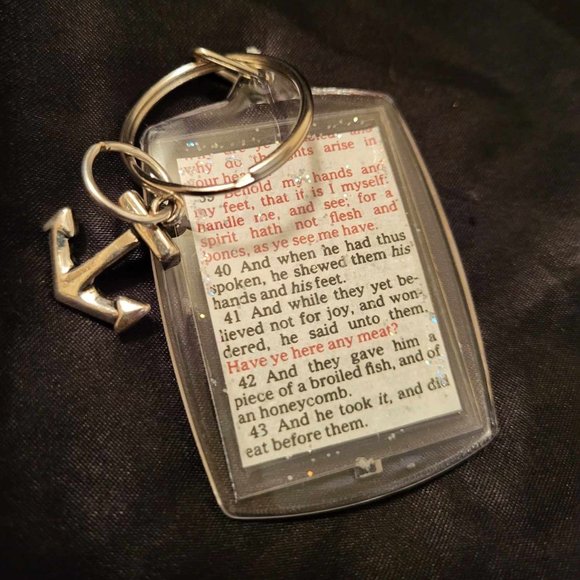 why do thoughts arise in
your hearts
39 Behold my hands and
my feet, that it is I myself:
handle me, and see; for a
spirit hath not flesh and
bones, as ye see me have.
40 And when he had thus
spoken, he shewed them his
hands and his feet.
41 And while they yet be-
lieved not for joy, and won-
dered, he said unto them,
Have ye here any meat?
42 And they gave him a
piece of a broiled fish, and of
an honeycomb.
43 And he took it, and did
eat before them.